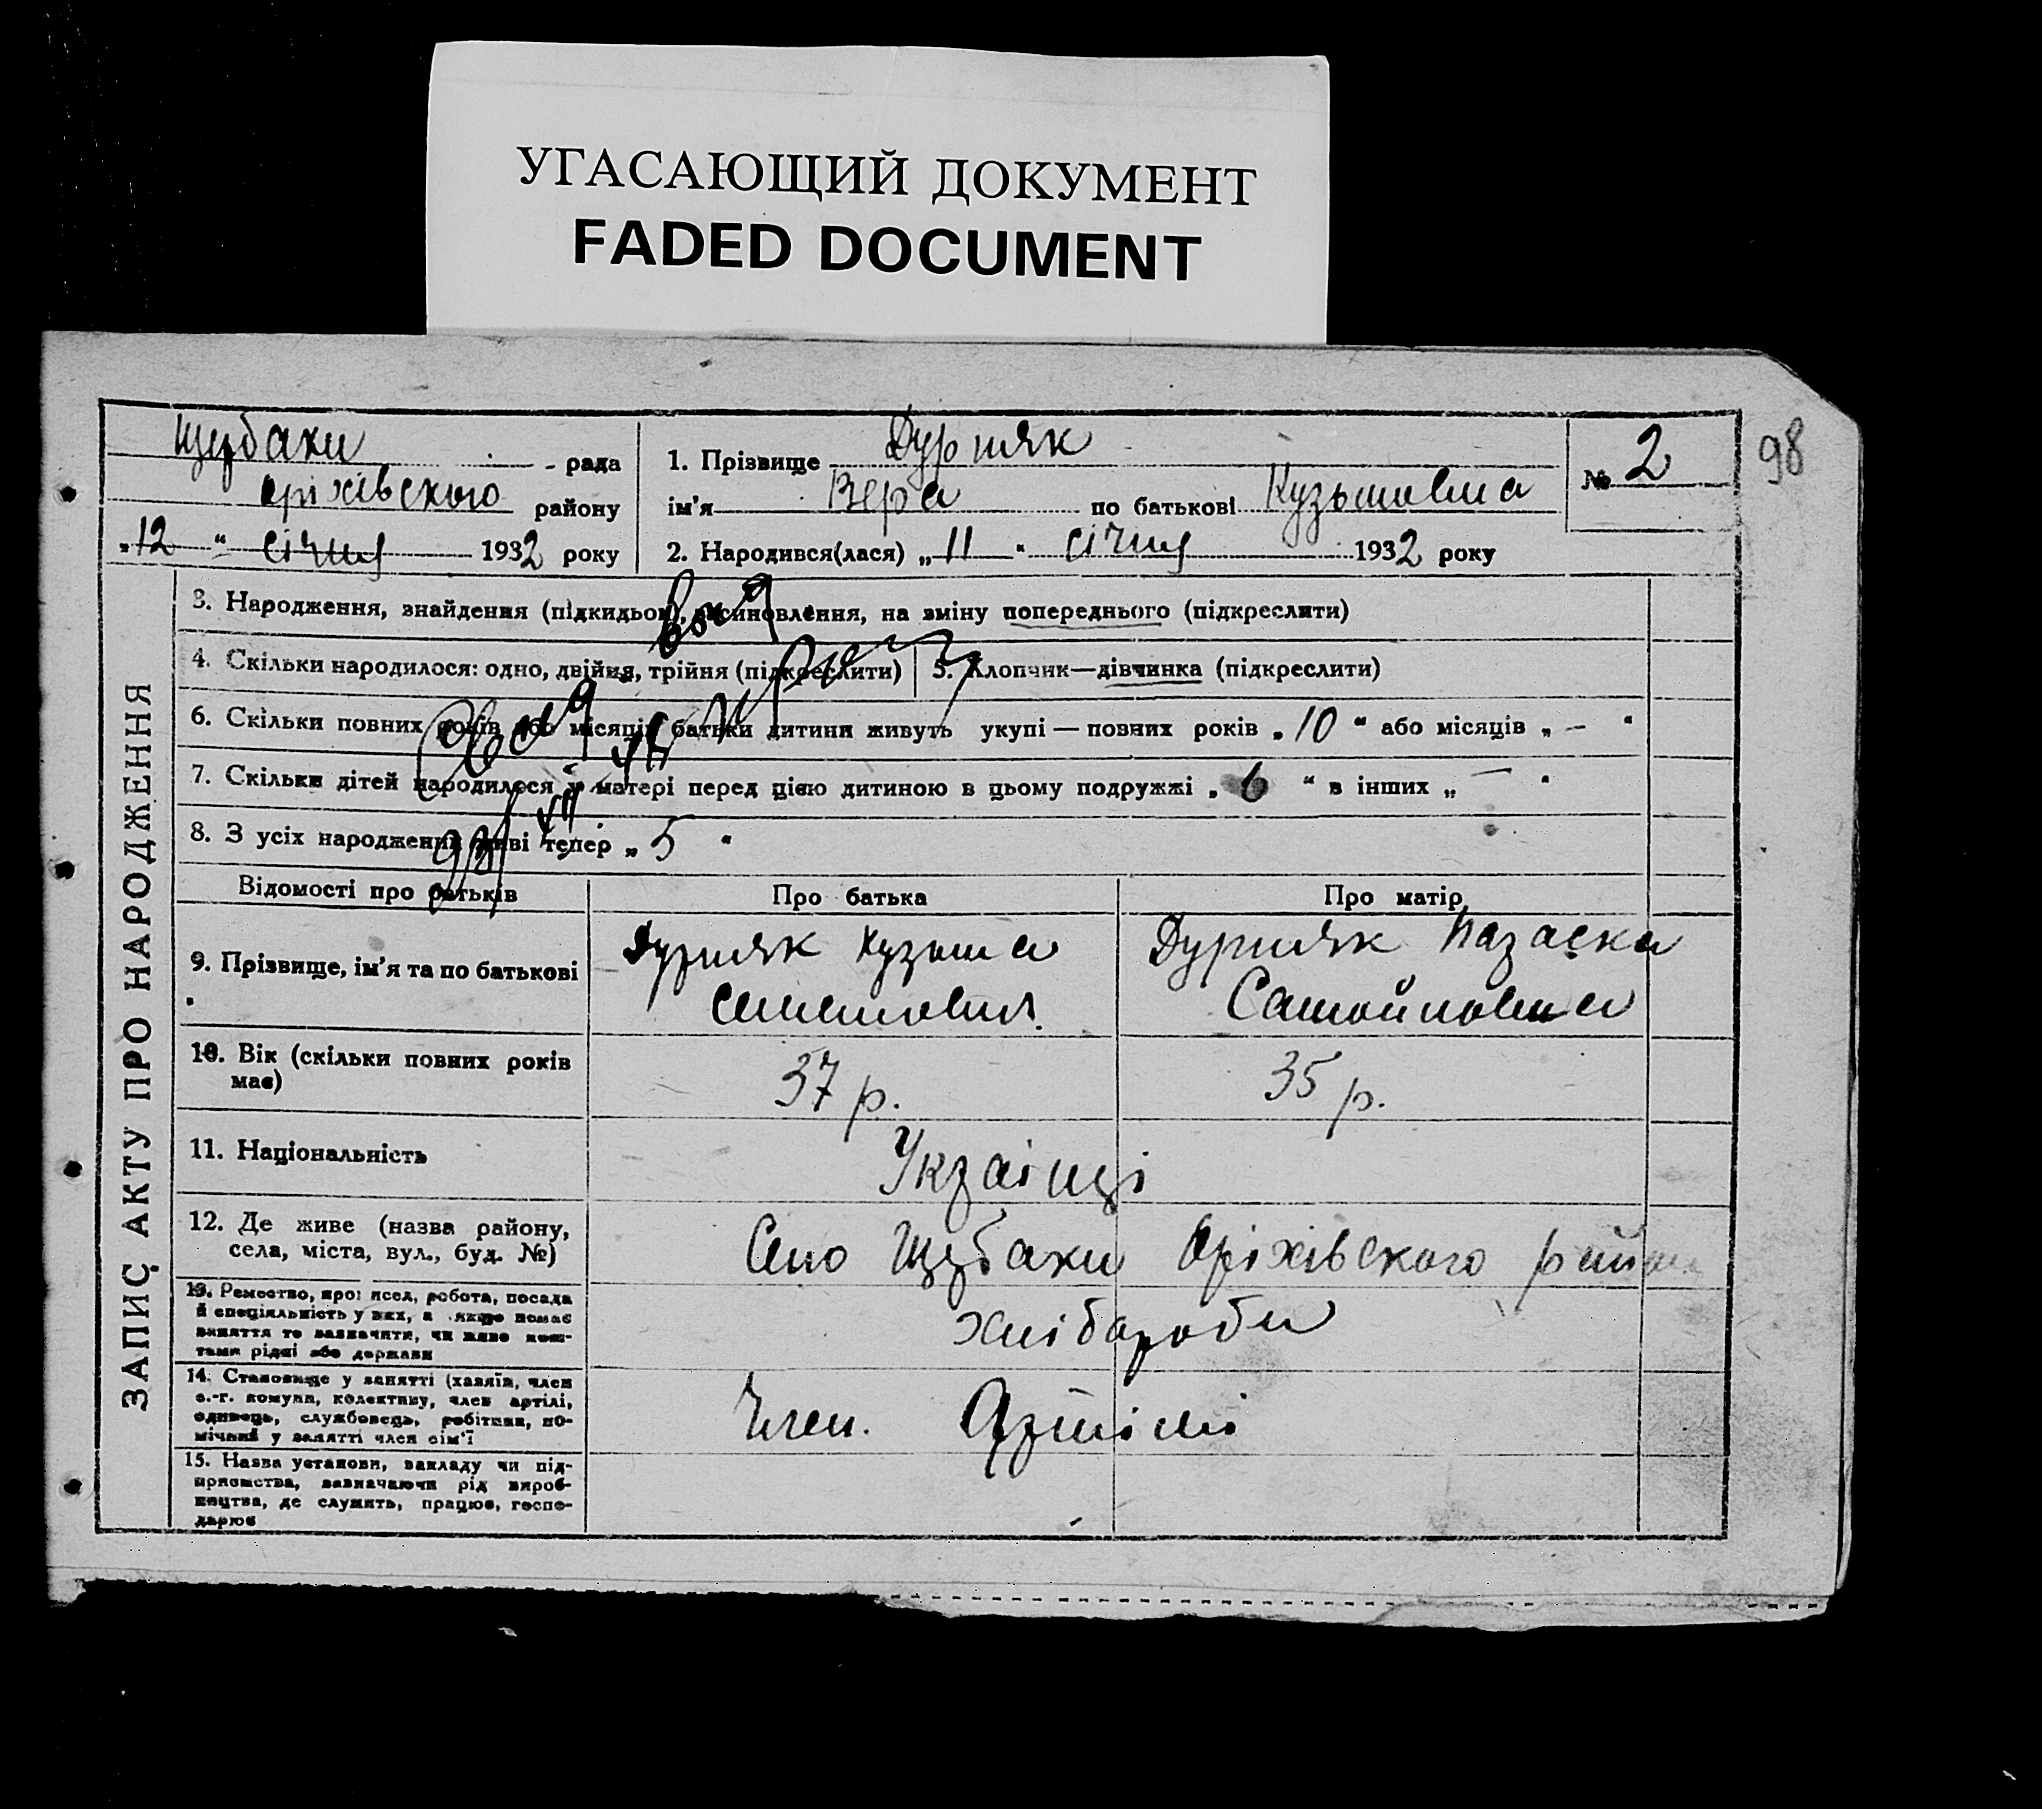 УГАСАЮЩИЙ ДОКУМЕНТ
FADED DOCUMENT
98
Щербаки рада
Оріхівського району
„12“ січня 1932 року
1. Прізвище Дурняк
ім'я Вера по батькові Кузьмовна
№ 2
2. Народився(лася) „11“ січня 1932 року
ЗАПИС АКТУ ПРО НАРОДЖЕННЯ
3. Народження, знайдення (підкидьок), усиновлення, на зміну попереднього (підкреслити)
4. Скільки народилося: одно, двійня, трійня (підкреслити)
5. Хлопчик—дівчинка (підкреслити)
6. Скільки повних років або місяців батьки дитини живуть укупі — повних років „10“ або місяців „—“
7. Скільки дітей народилося у матері перед цією дитиною в цьому подружжі „6“ в інших „—“
8. З усіх народжених живі тепер „5“
Відомості про батьків
Про батька
Про матір
9. Прізвище, ім'я та по батькові
Дурняк Кузьма
Семенович
Дурняк Параска
Самойловна
10. Вік (скільки повних років
має)
37 р.
35 р.
11. Національність
Українці
12. Де живе (назва району,
села, міста, вул., буд. №)
Село Щербаки Оріхівського району
13. Ремество, промисел, робота, посада
й спеціяльність у них, а якщо немає
заняття то зазначити, чи живе кош-
тами рідні або держави
хлібороби
14. Становище у занятті (хазяїн, член
с.-г. комуни, колективу, член артілі,
одинець, службовець, робітник, по-
мічний у занятті член сім'ї
Член Артілі
15. Назва установи, закладу чи під-
приємства, зазначаючи рід вироб-
ництва, де служить, працює, госпо-
дарює